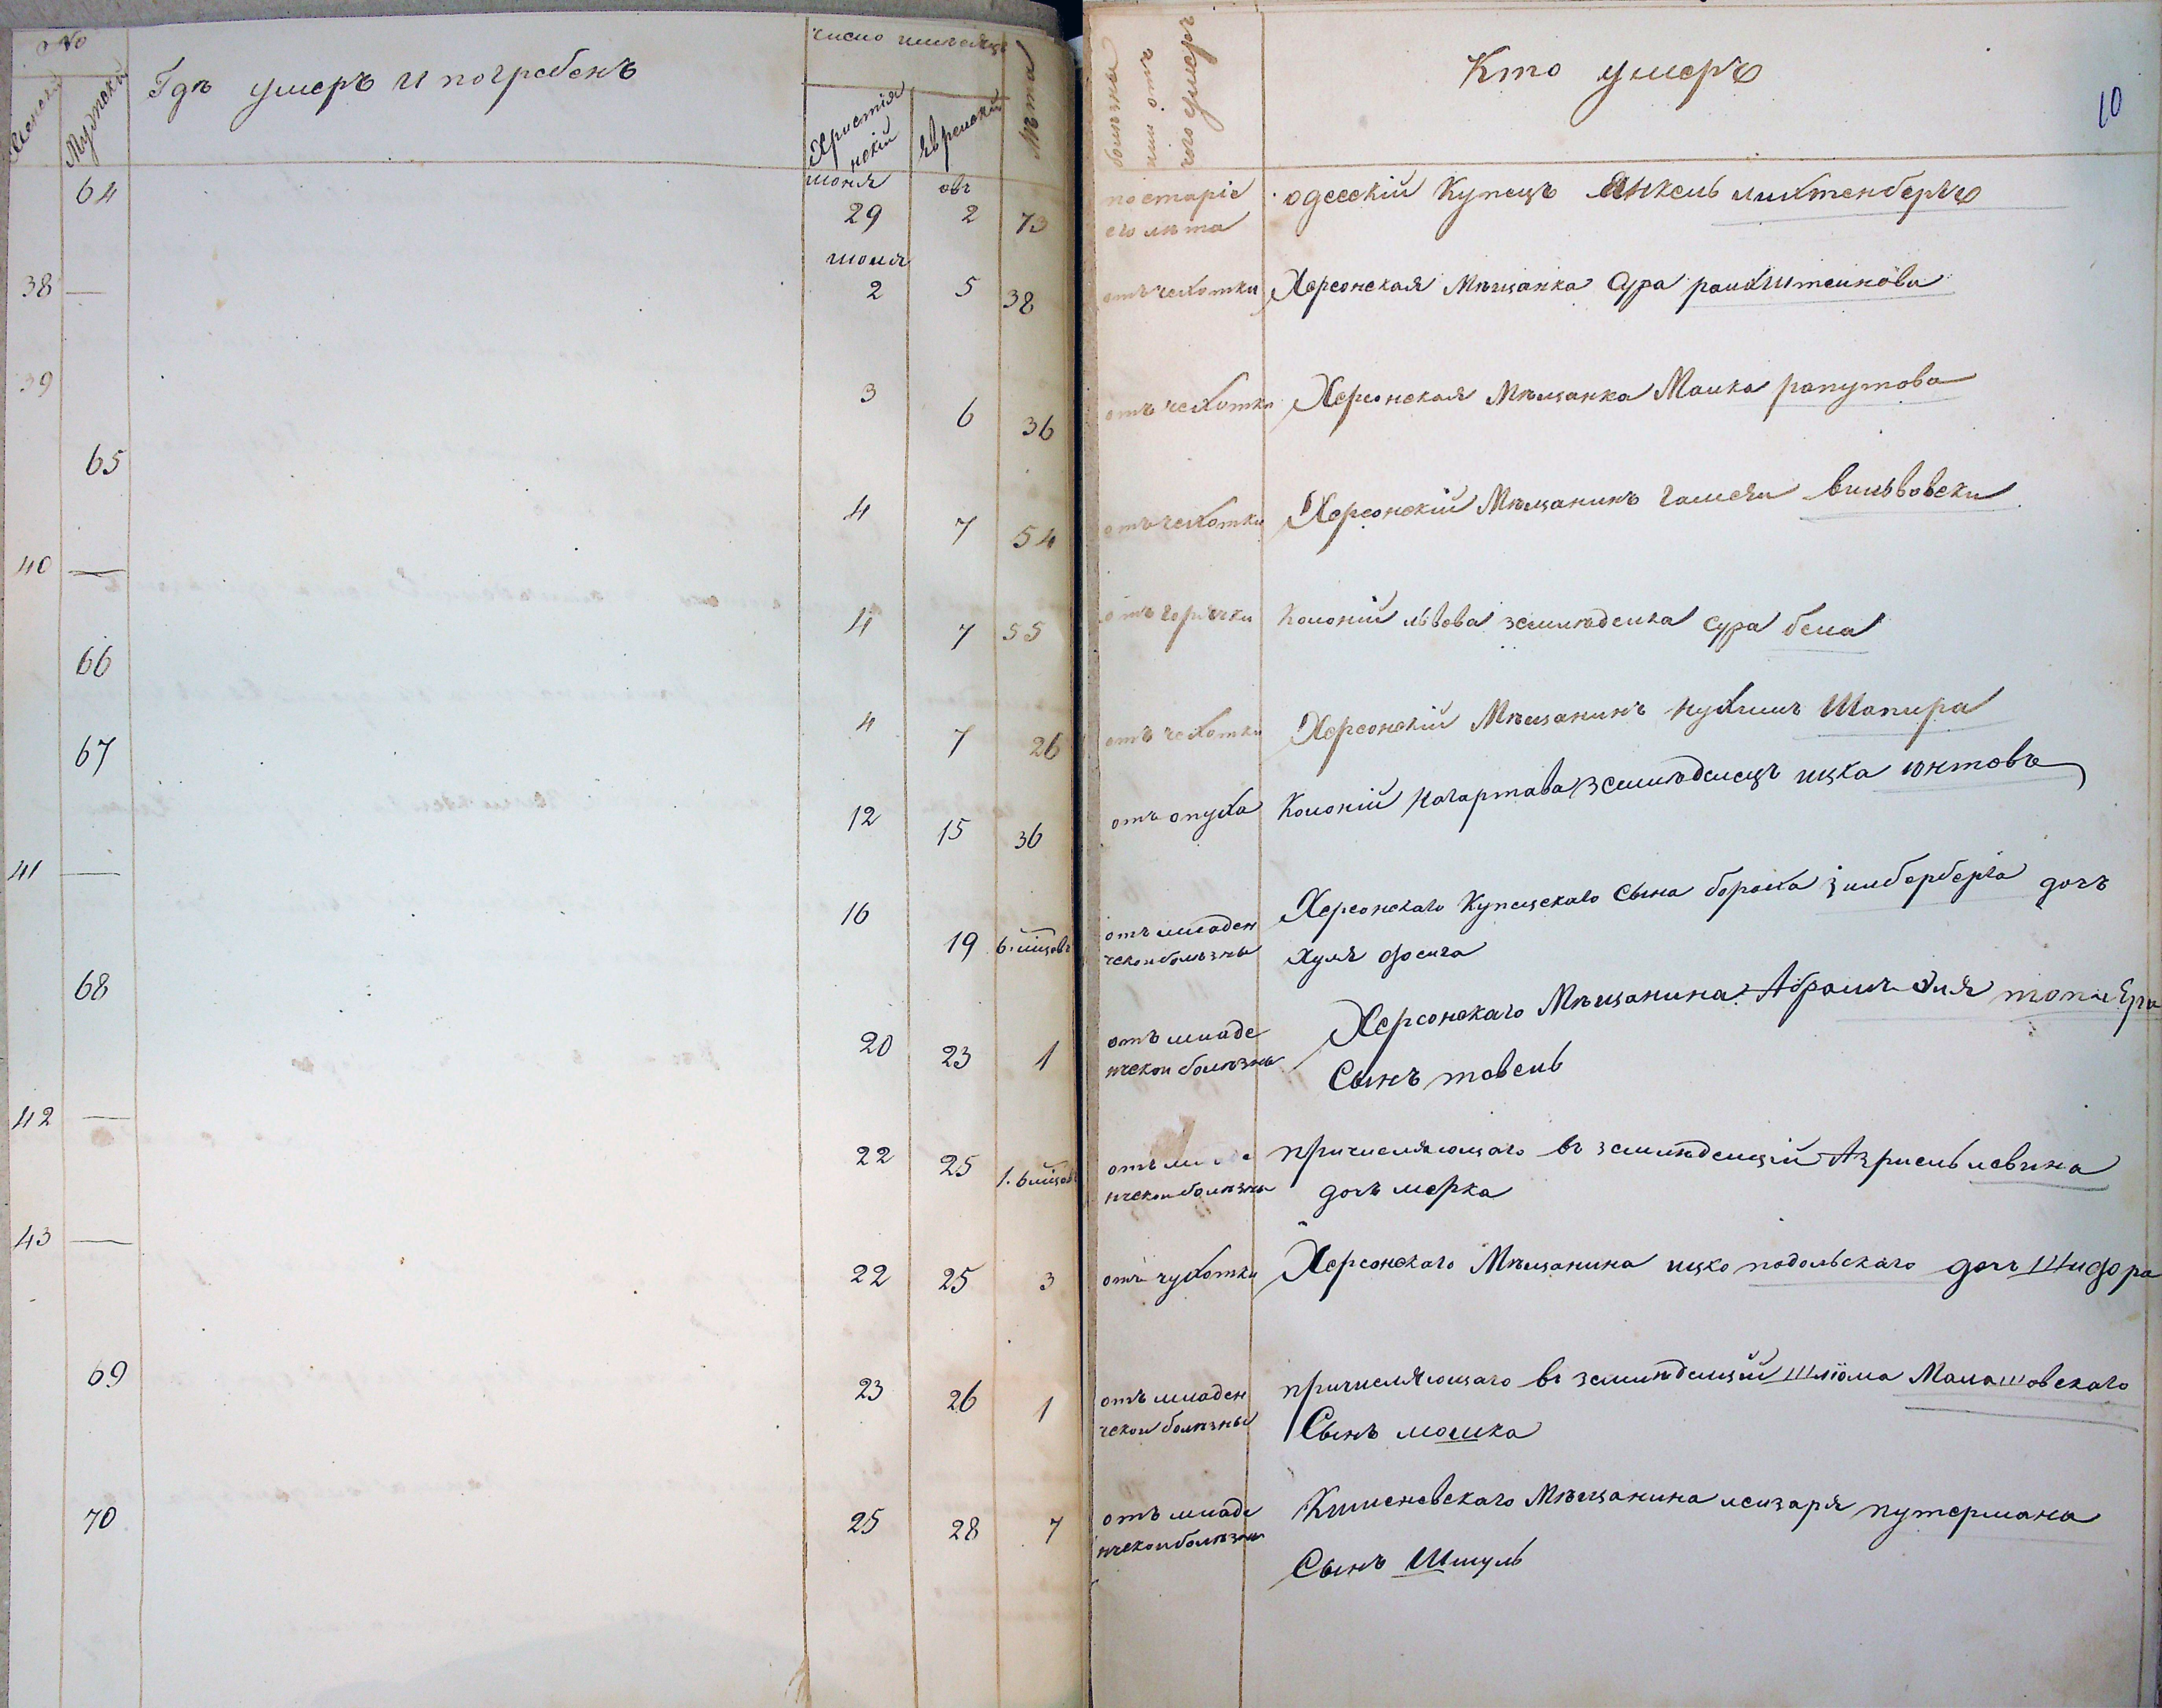 No
Женски
Мужески
Гдѣ умеръ и погребенъ
число и мѣсяцъ
Християнскій
Еврейскій
Лѣта
болѣзнь или отъ чего умеръ
Кто умеръ
10
64 июня 29 авг 2 73 по старіе его лѣта одесскій Купецъ Янкель лихтенбергъ
июля
38 — 2 5 38 отъ чехотки Херсонская Мѣщанка Сура райхштейнова
39 3 6 36 отъ чехотки Херсонская Мѣщанка Малка рапутова
65 4 7 54 отъ чехотки Херсонскій Мѣщанинъ вильвовски
40 — 4 7 55 отъ горячки Колоній львова земледелка Сура бела
66 4 7 26 отъ чехотки Херсонскій Мѣщанинъ Нухимъ Шапира
67 12 15 36 отъ опуха Колоній Нагартава Земледелецъ ицка юнтовъ
41 — 16 19 6 мѣцовъ отъ младенческой болѣзны Херсонскаго Купецскаго Сына бораха зильберберга дочъ
хуля фейга
68 20 23 1 отъ младенческой болѣзны Херсонскаго Мѣщанина Абрамъ
Сынъ товель
42 — 22 25 1. 6 мѣцовъ нческой болѣзны причисляющаго въ земледелцій Азриель левина
дочъ мерка
43 — 22 25 3 отъ чухотки Херсонскаго Мѣщанина ицко подольскаго дочъ Шифра
69 23 26 1 отъ младенческой болѣзны причисляющаго въ земледелцій шліома Малашовскаго
Сынъ мошка
70 25 28 7 отъ младенческой болѣзны Кишеневскаго Мѣщанина лейзаря путермана
Сынъ Шмуль